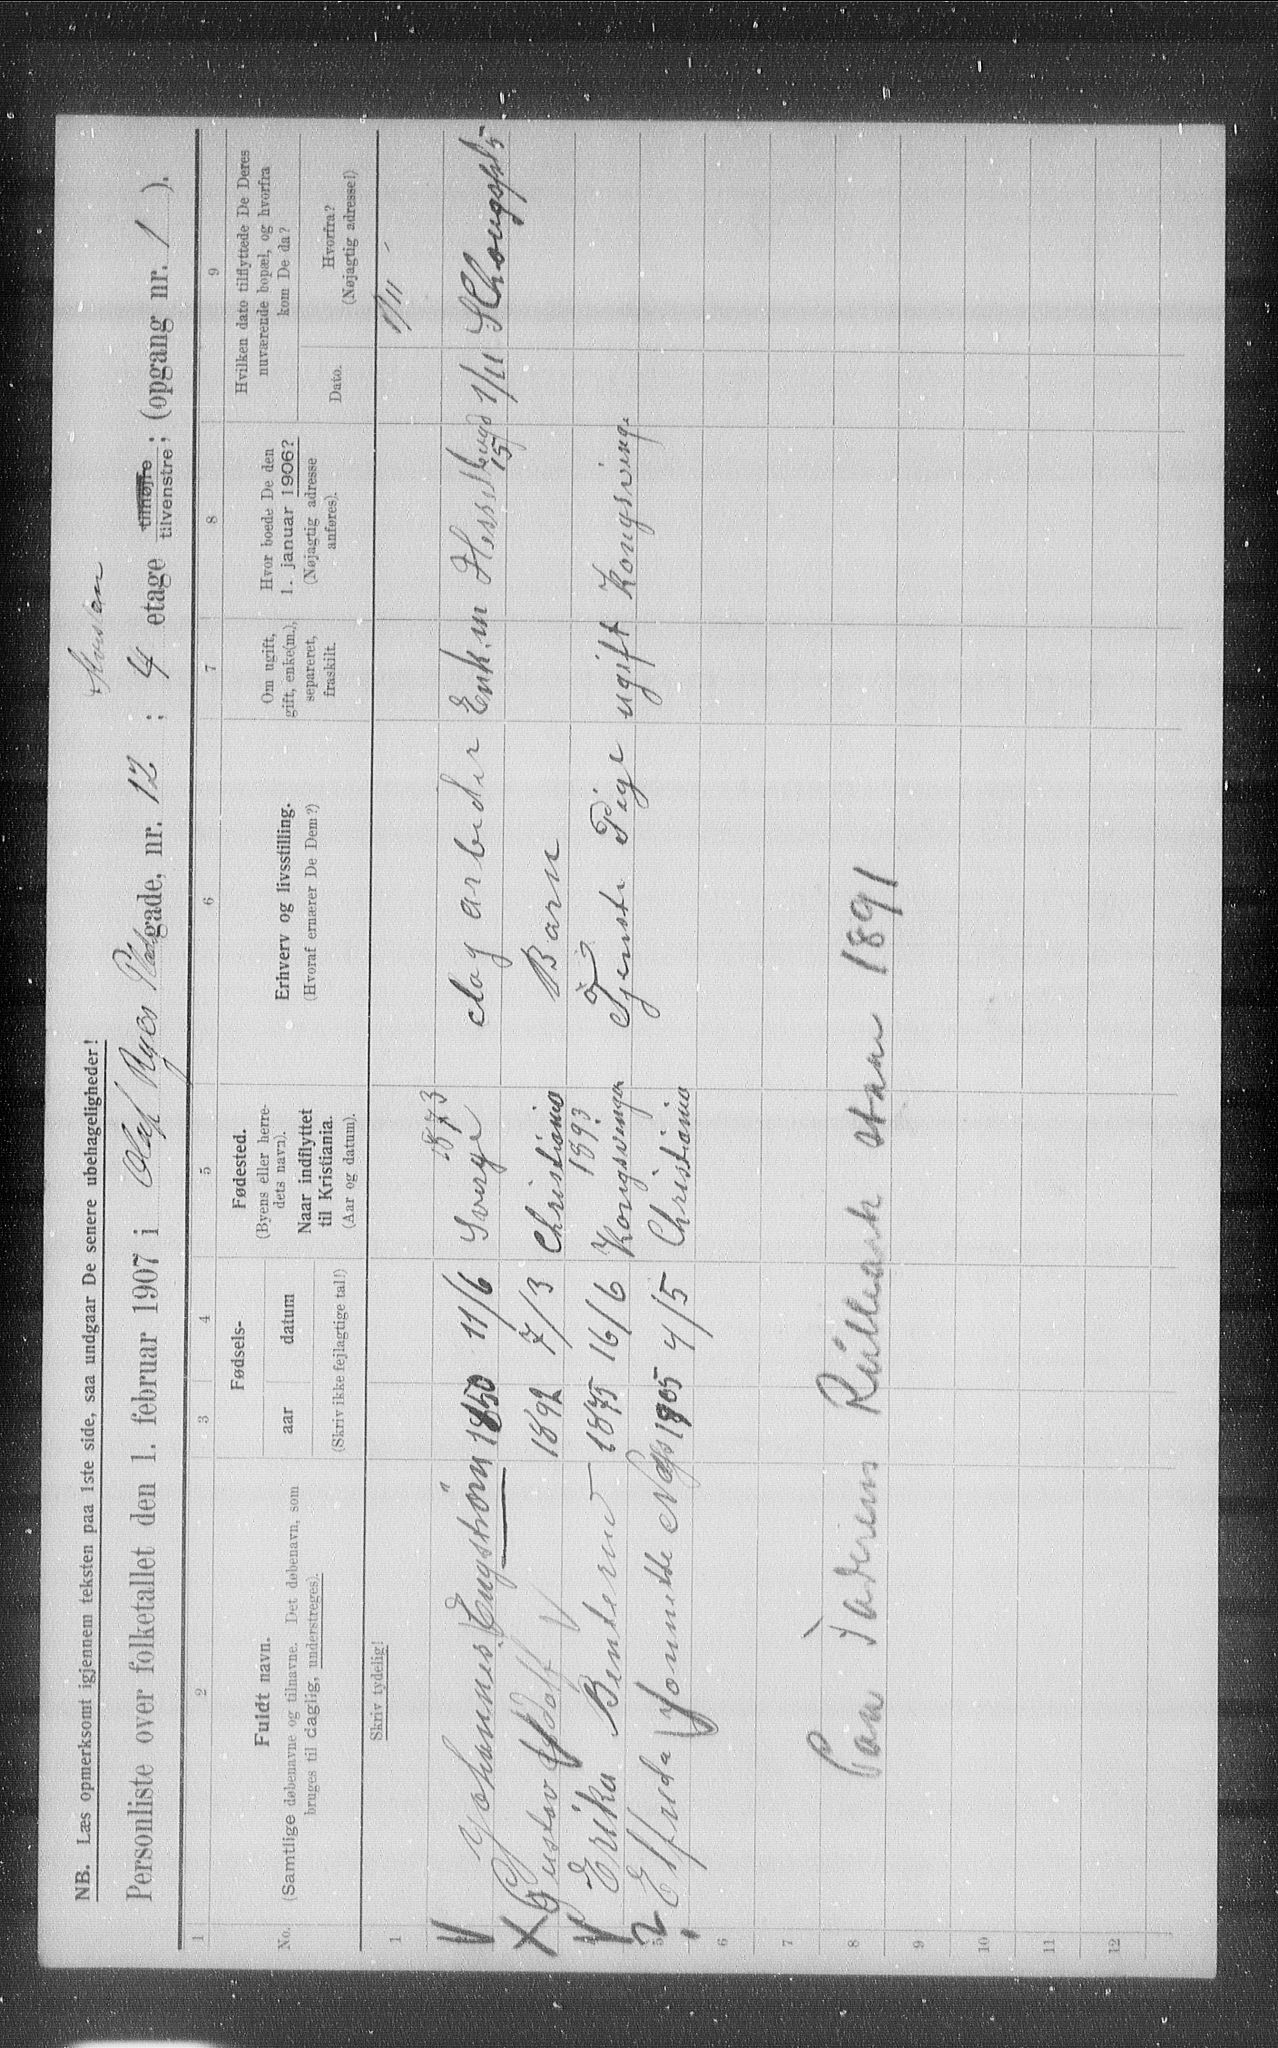 NB. Læs opmerksomt igjennem teksten paa 1ste side, saa undgaar De senere ubehageligheder!
Personliste over folketallet den 1. februar 1907 i Olaf Ryes Plads gade, nr. 12 ; 4 etage tilhøjre tilvenstre; (opgang nr. 1 ).
1 2 3 4 5 6 7 8 9
No.
Fuldt navn.
(Samtlige døbenavne og tilnavne. Det døbenavn, som
bruges til daglig, understreges).
Fødsels-
aar datum
(Skriv ikke fejlagtige tal!)
Fødested.
(Byens eller herre-
dets navn).
Naar indflyttet
til Kristiania.
(Aar og datum).
Erhverv og livsstilling.
(Hvoraf ernærer De Dem?)
Om ugift,
gift, enke(m.),
separeret,
fraskilt.
Hvor boede De den
1. januar 1906?
(Nøjagtig adresse
anføres).
Hvilken dato tilflyttede De Deres
nuværende bopæl, og hvorfra
kom De da?
Dato.
Hvorfra?
(Nøjagtig adresse!)
Skriv tydelig!
1 1/11
1873
Johannes Engström 1850 11/6 Sverge dag arbeider Enk.m 15 1/11
Gustav Adolf 1892 7/3 Christiania Barn
1893
4 Erika Benterud 1875 16/6 Kongsvinger
5 Elfrida Jonnette 1905 4/5 Christiania Tjeneste Pige ugift Kongsvinge
6
7
8 1891
9
10
11
12